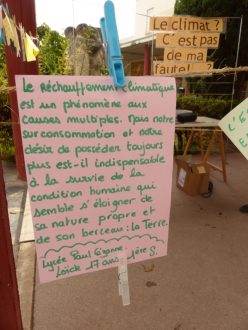 Le climat?
C'est pas
de ma
faute!
Le réchauffement climatique
est un phénomène aux
causes multiples. Mais notre
surconsommation et notre
désir de posséder toujours
plus est-il indispensable
à la survie de la
condition humaine qui
semble s'éloigner de
sa nature propre et
de son berceau : la Terre.
Lycée Paul Cézanne
Loïck 17 ans 1ère S.